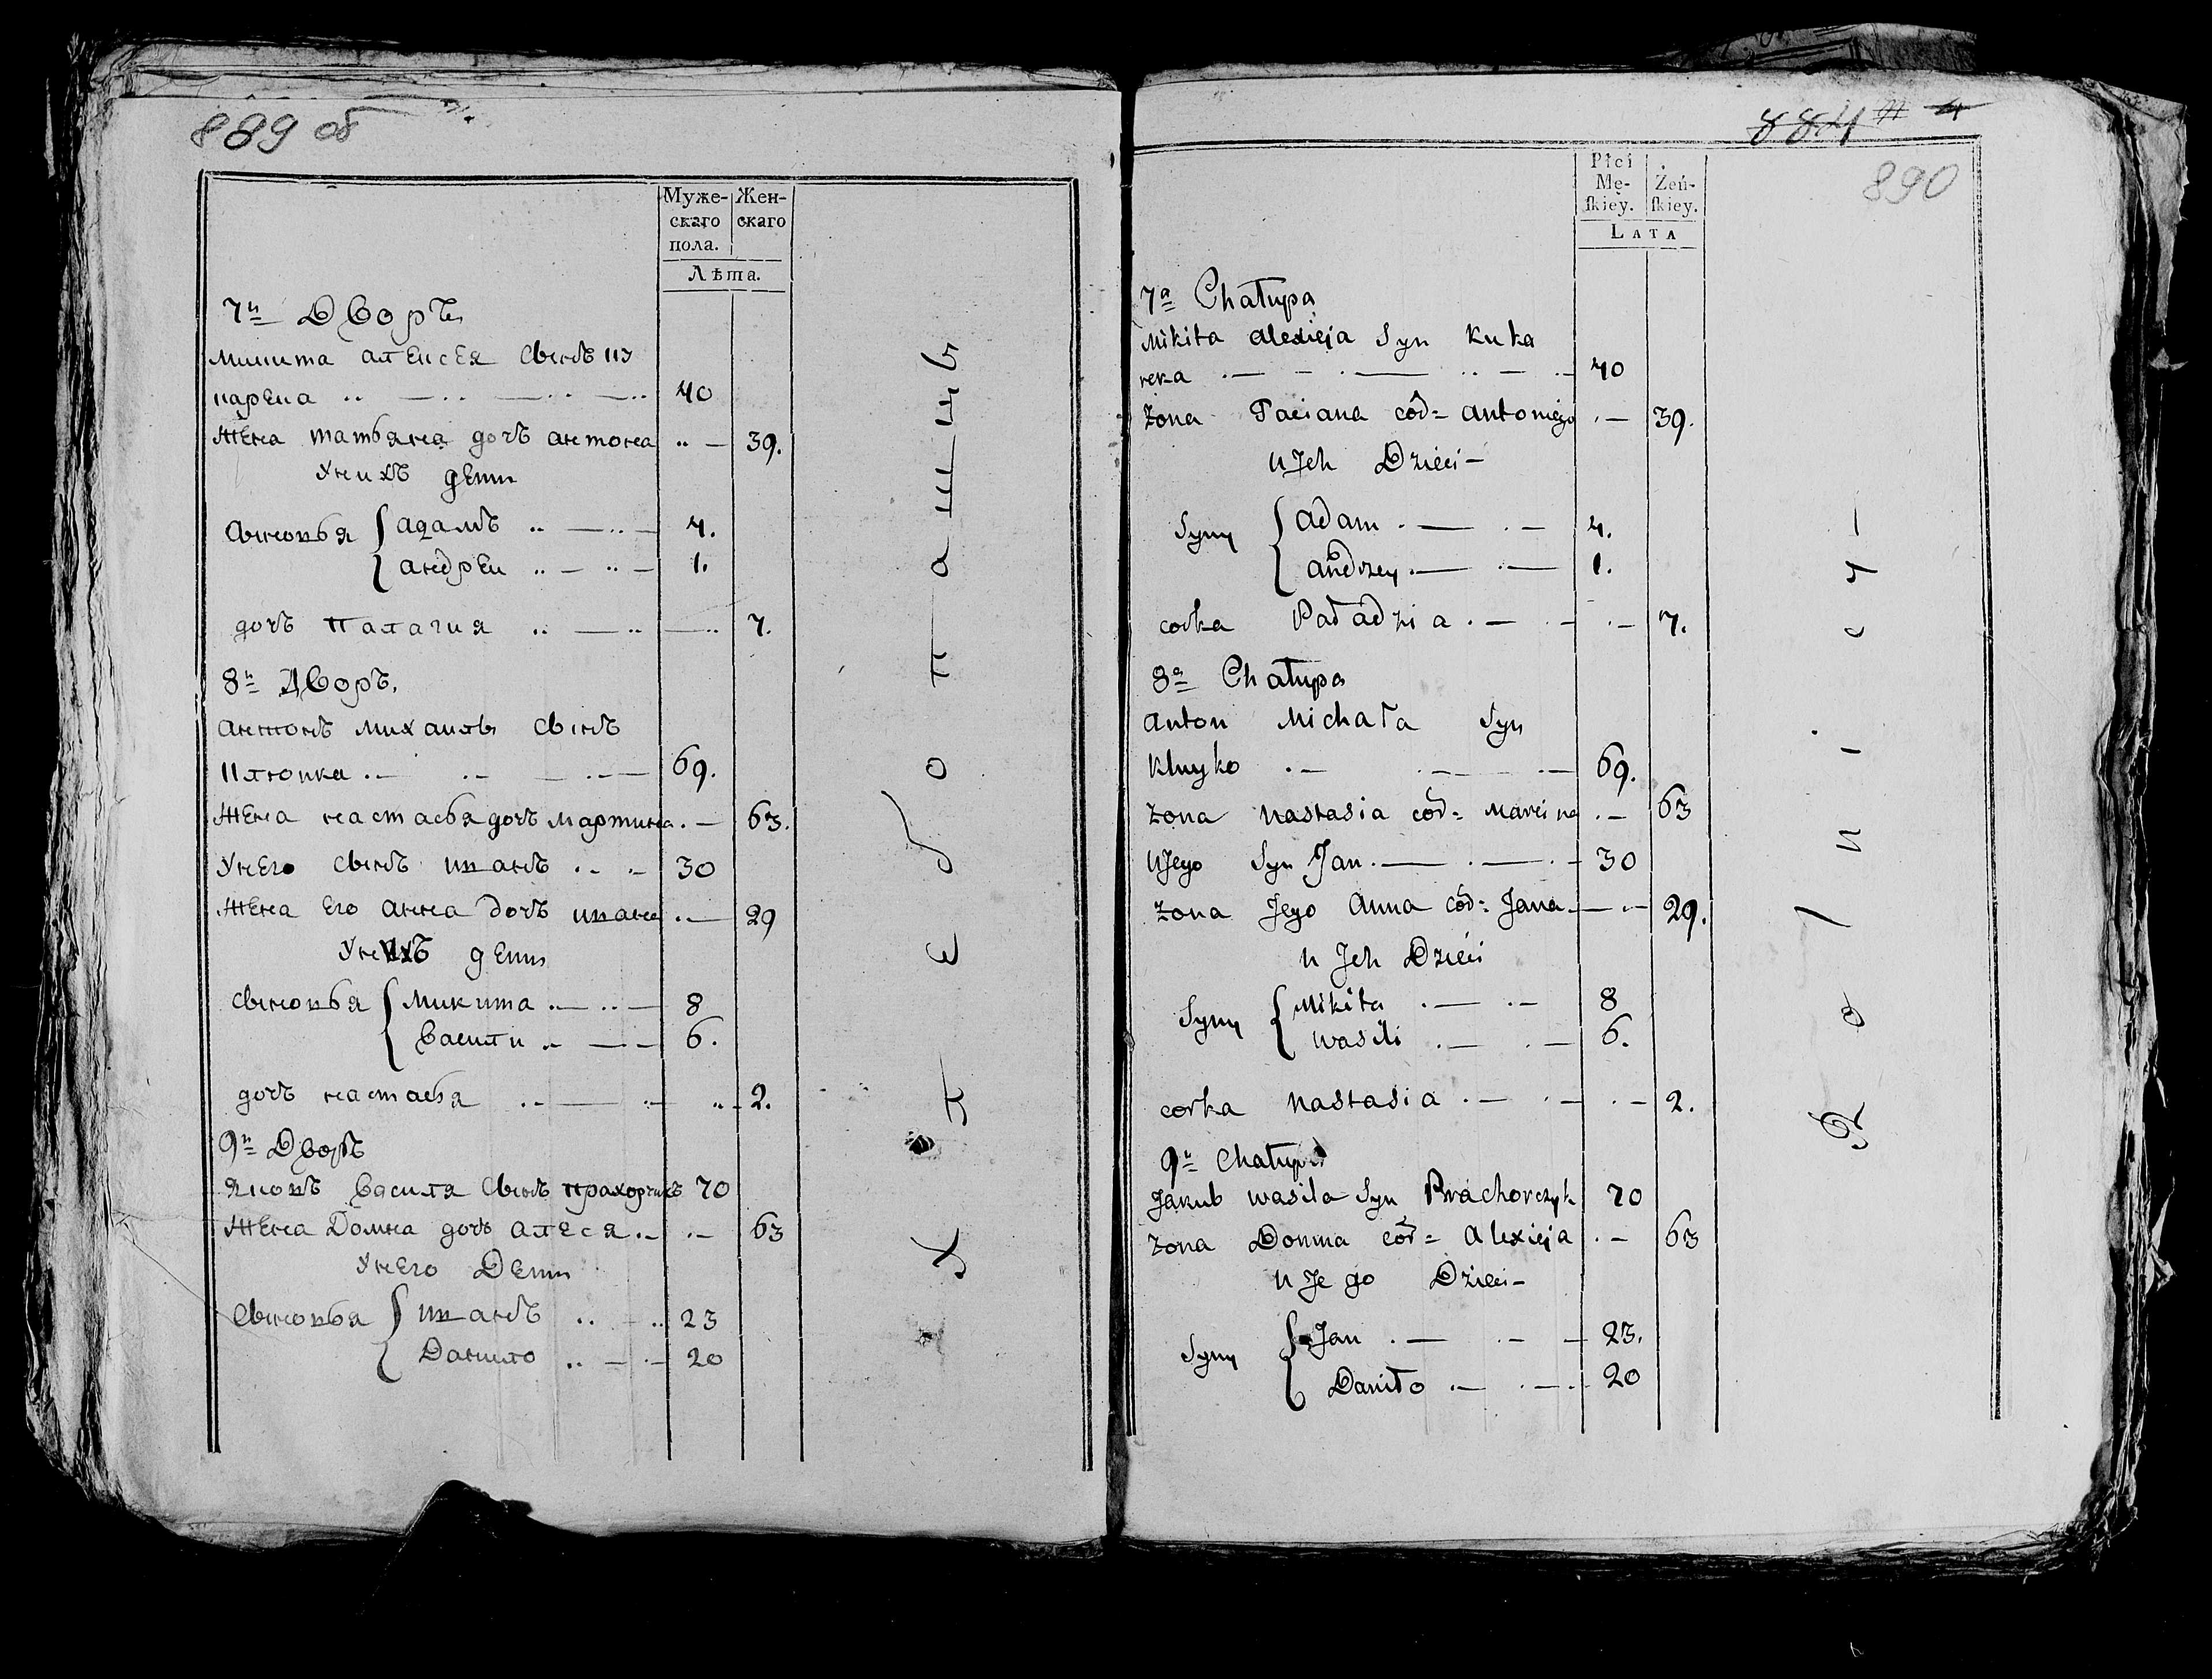 889 об
Муже-
скаго
пола.
Жен-
скаго
Лѣта.
7й Дворъ
Микита алексея сынъ ку
карека 40
Жена татьяна дочъ антона 39.
Унихъ дети
Сыновья { адамъ 4.
андреи 1.
дочъ палагия 7.
8й Дворъ.
антонъ михаилы сынъ
Клюика 69.
Жена настасья дочъ мартина 63.
Унего сынъ иванъ 30
Жена его анна дочъ ивана 29
Унихъ дети
сыновья { Микита 8
Васили 6.
дочъ настасья 2.
9й Дворъ
Яковъ Василя сынъ прахорчикъ 70
Жена Домна дочъ алеся 63
Унего Дети
Сыновья { иванъ 23
Данило 20
884
890
Płci
Mę-
ſkiey.
Żeń-
ſkiey.
LATA
7a Chałupa
Mikita alexieja Syn Kuka
reka 40
żona Taciana cór= antoniego 39.
u Jch Dzieci
Syny { adam 4.
andrzey 1.
corka Paładzia 7.
8a Chałupa
anton Michała Syn
Kluyko 69.
żona nastasia cór= Marcina 63
uJego Syn Jan 30
żona Jego anna cór= Jana 29.
u Jch Dzieci
Syny { Mikita 8
wasili 6.
corka nastasia 2.
9a Chałupa
Jakub wasila Syn Prachorczyk 70
żona Domna cór= Alexieja 63
u Jego Dzieci
Syny { Jan 23.
Daniło 20